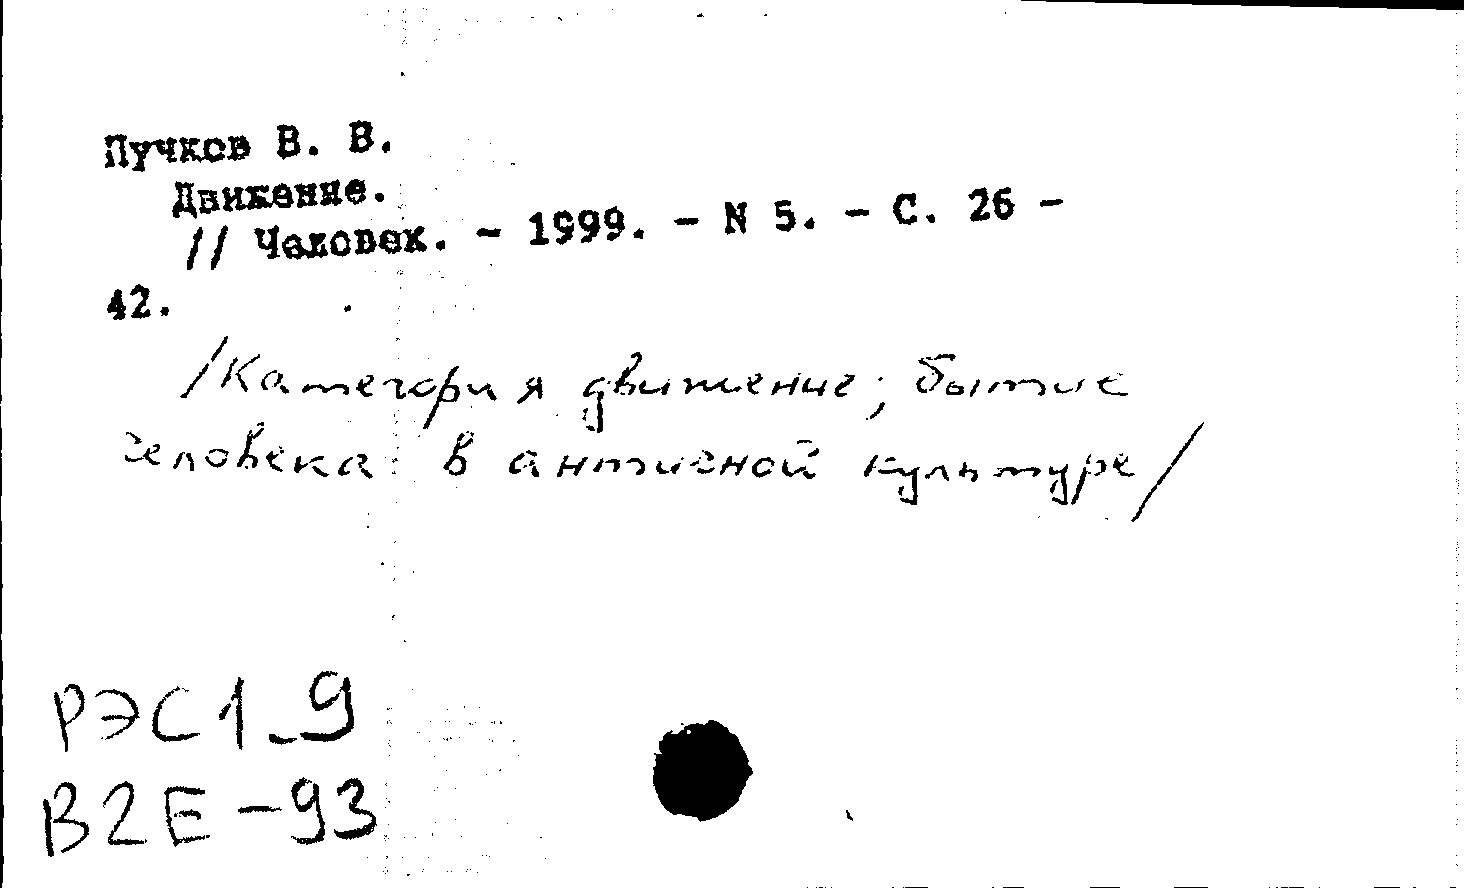 Пучков В. В.
Движение.
// Человек. - 1999. - N 5. - С. 26 -
42.
/Категория движение; бытие
человека в античной культуре/
РЭС1_9
В2Е-93